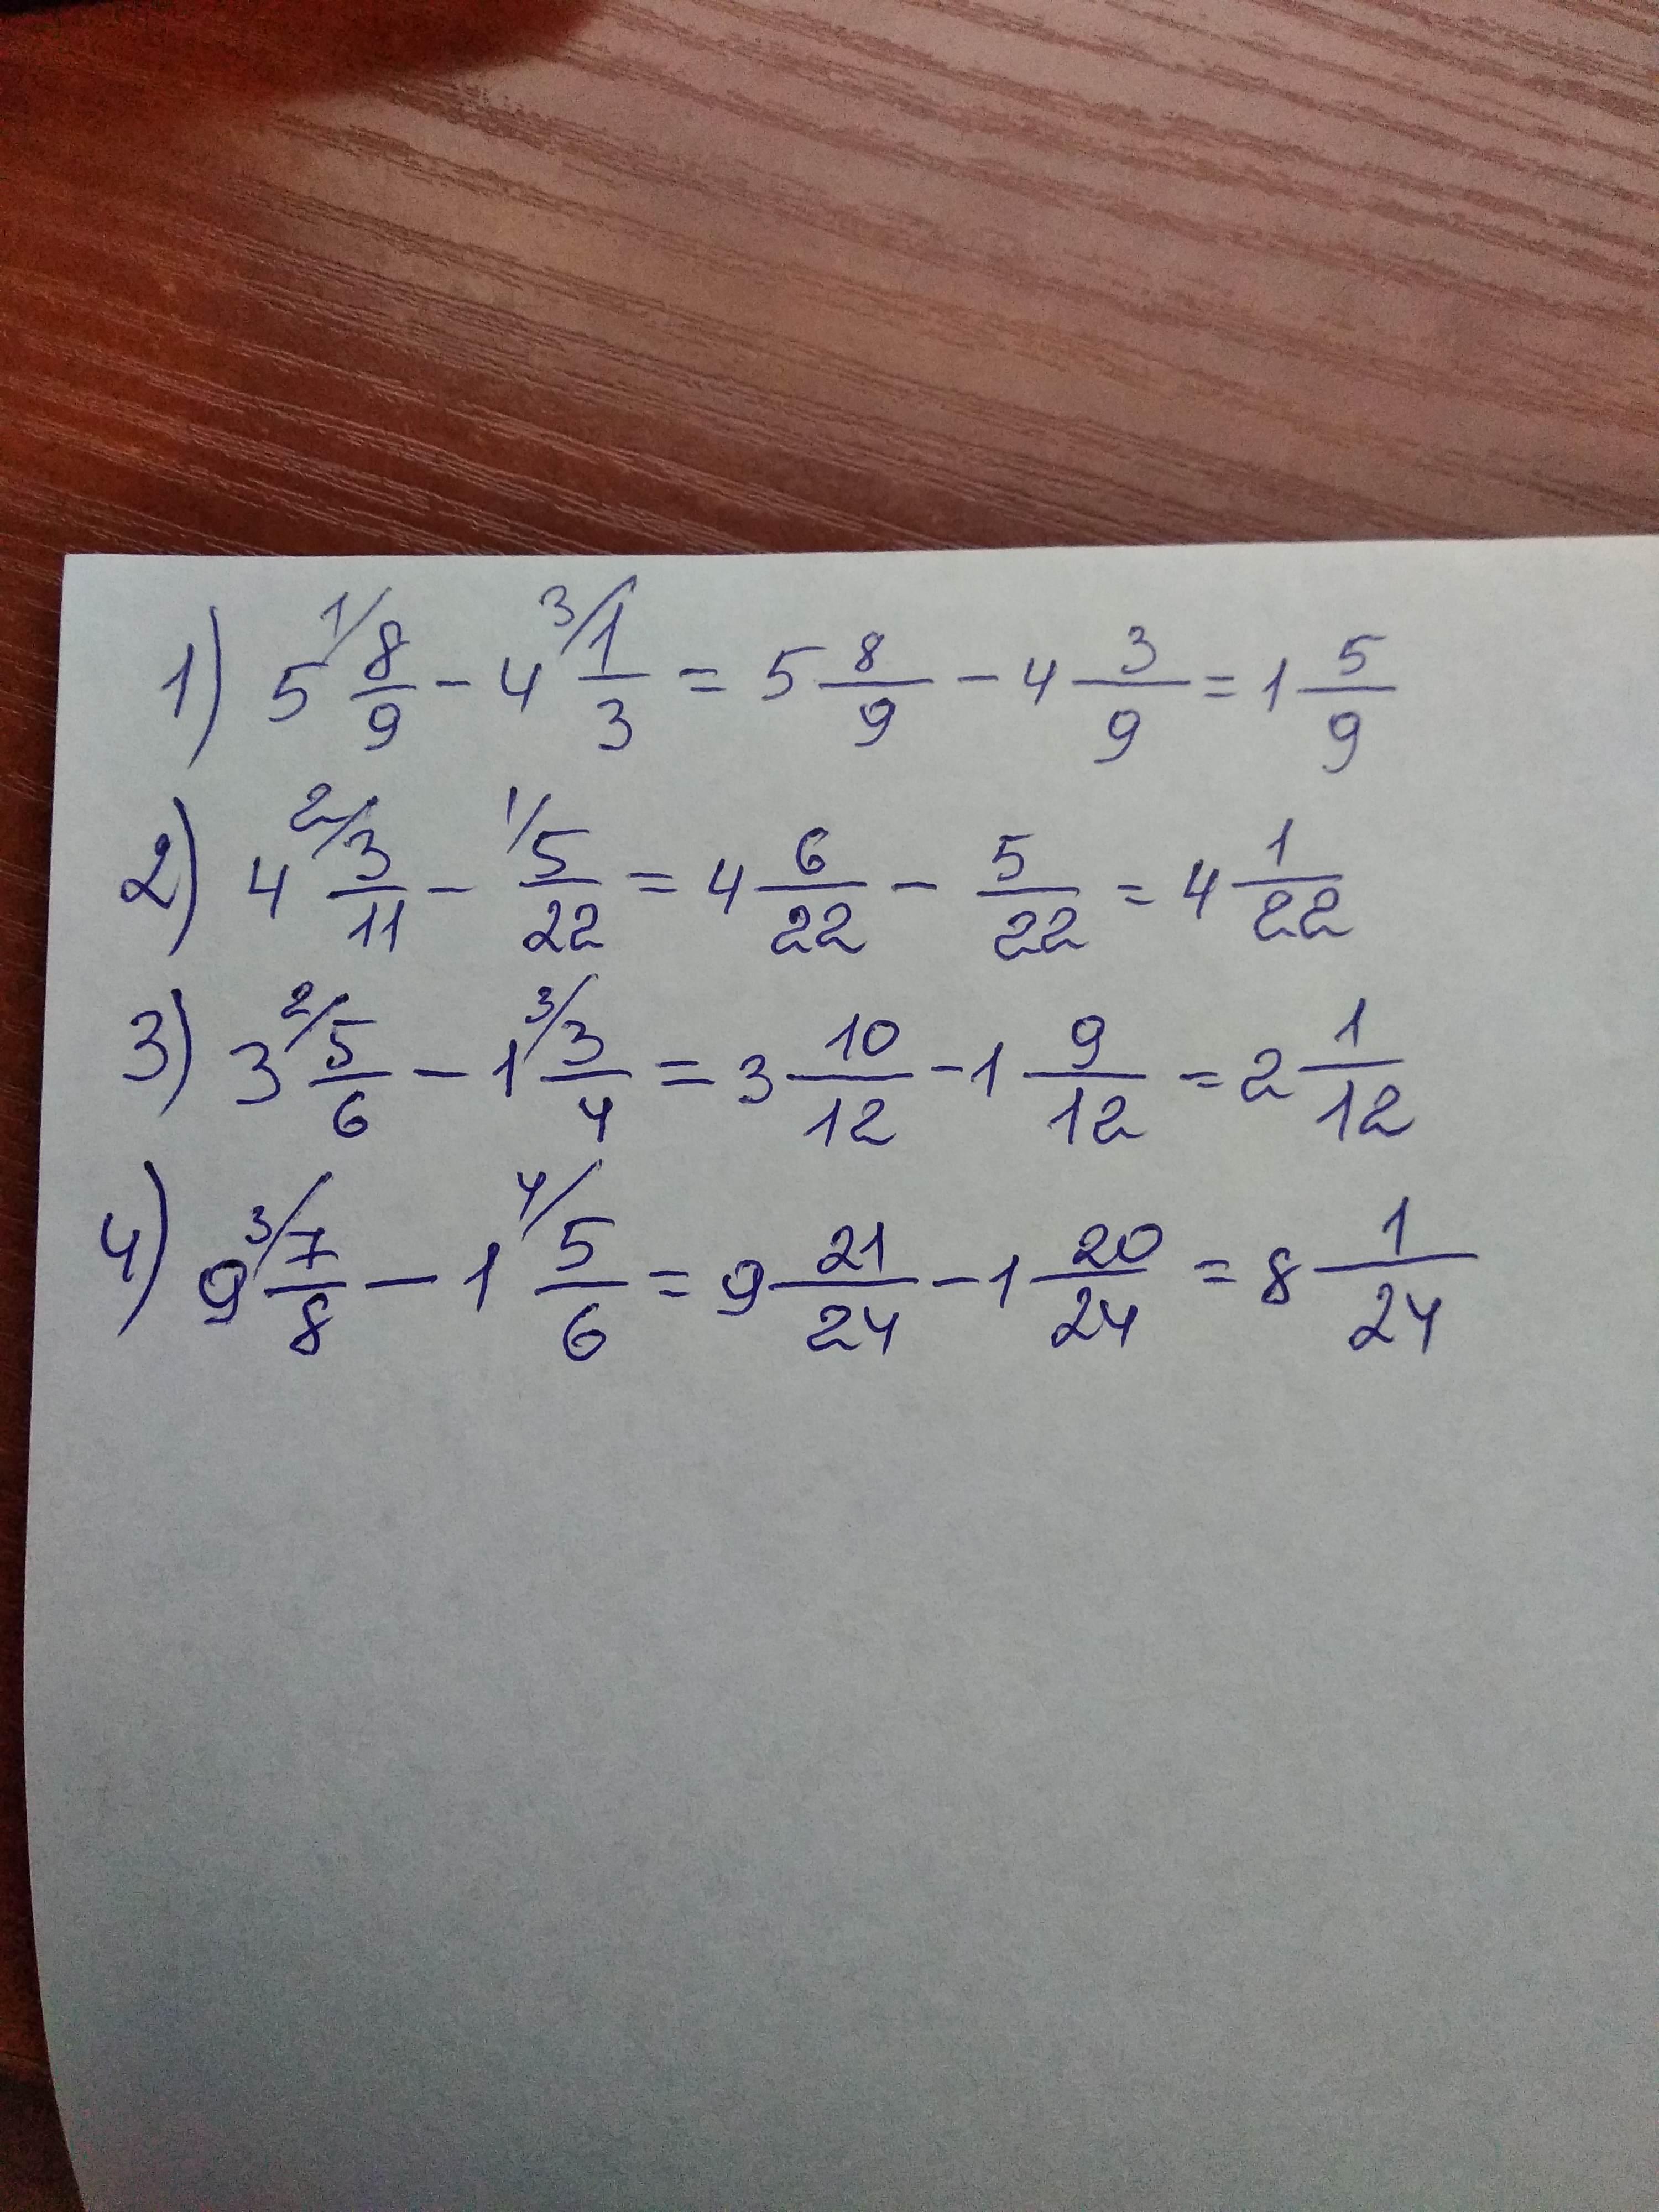 1) 5 ¹⁄ 8/9 - 4 ³⁄ 1/3 = 5 8/9 - 4 3/9 = 1 5/9
2) 4 ²⁄ 3/11 - ¹⁄ 5/22 = 4 6/22 - 5/22 = 4 1/22
3) 3 ²⁄ 5/6 - 1 ³⁄ 3/4 = 3 10/12 - 1 9/12 = 2 1/12
4) 9 ³⁄ 7/8 - 1 ⁴⁄ 5/6 = 9 21/24 - 1 20/24 = 8 1/24